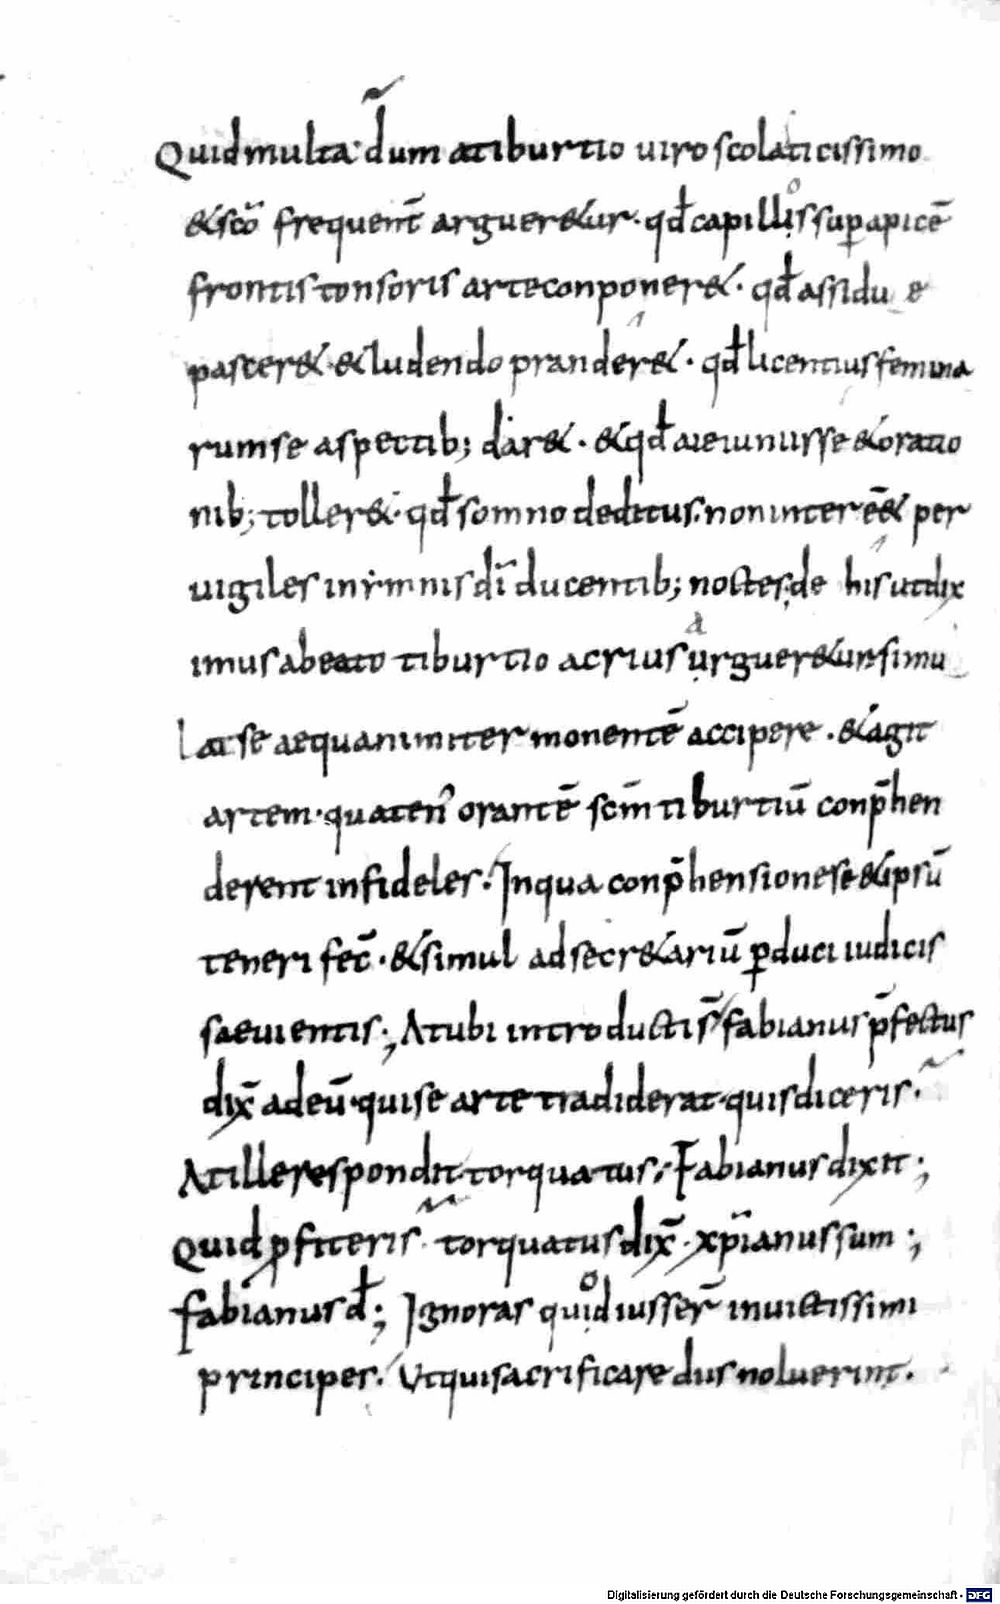 Quid multa· dum a tiburtio uiro scolaticissimo
&scō frequent̄ arguer&ur· qđ capillis sup apicē
frontis tonsoris arte conponer&· qđ assidue
pascer& &ludendo prander&· qđ licentius femina
rum se aspectib; dar&· &qđ a ieiunii sse &oratio
nib; toller& qđ somno deditus· non inter ēē& per
uigiles in ymnis dī ducentib; noctes· de his ut dix
imus a beato tiburtio acrius urguer&ur simu
lat se aequanimiter monentē accipere· &agit
artem· quaten' orantē scm̄ tiburtiū conp̄hen
derent infideles· In qua conp̄hensione se &ipsū
teneri fec̄· &simul ad secr&ariū ꝑduci iudicis
saeuientis; At ubi introductis fabianus p̄fectus
dix̄ ad eū· qui se arte tradiderat· quis diceris·
At ille respondit torquatus· Fabianus dixit;
Quid ꝓfiteris torquatus dix̄· xp̄ianus sum;
fabianus đ; Ignoras quod iusser̄ inuictissimi
principes· Ut qui sacrificare diis noluerint·
Digitalisierung gefördert durch die Deutsche Forschungsgemeinschaft - DFG